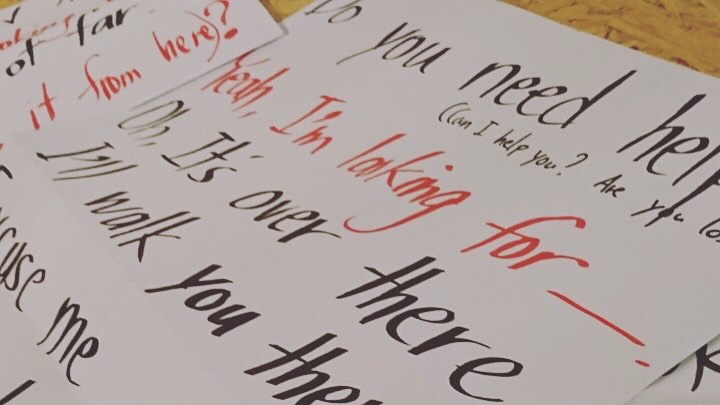 ot far
it from here)?
Do you need help
(Can I help you? Are you lo
Yeah, I'm looking for ___.
Oh, It's over there
I'll walk you there
cuse me